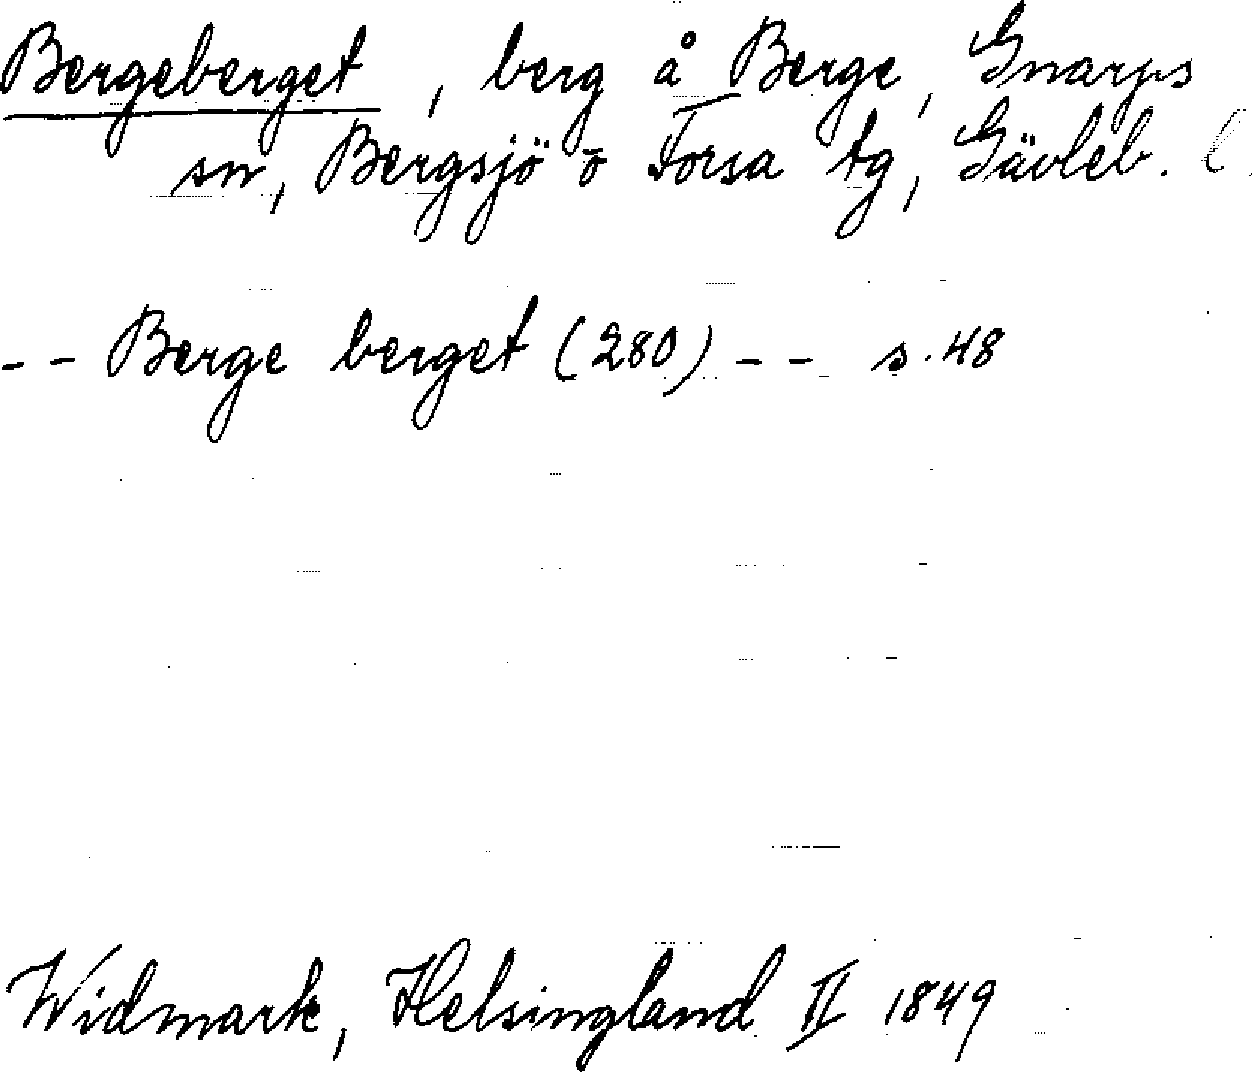 Bergeberget, berg å Berge, Gnarps
sn, Bergsjö o Forsa tg, Gävleb. l.
-- Berge berget (280) -- s. 48
Widmark, Helsingland II 1849